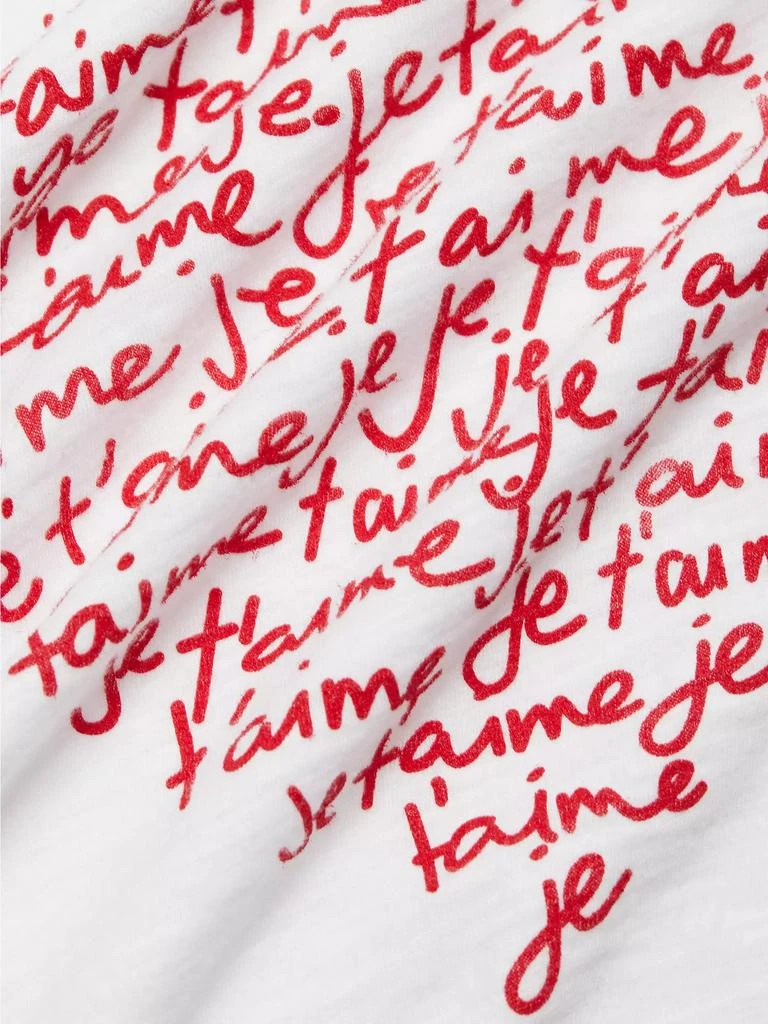 t'aime
je t'aime je t'aime
je t'aime je t'aime
t'aime je t'aime
me je t'aime
je t'aime je je t'ai
t'aime je t'aime je t'ai
je t'aime je t'aim
je t'aime je
t'aime je t'aime je
je t'aime
t'aime
je